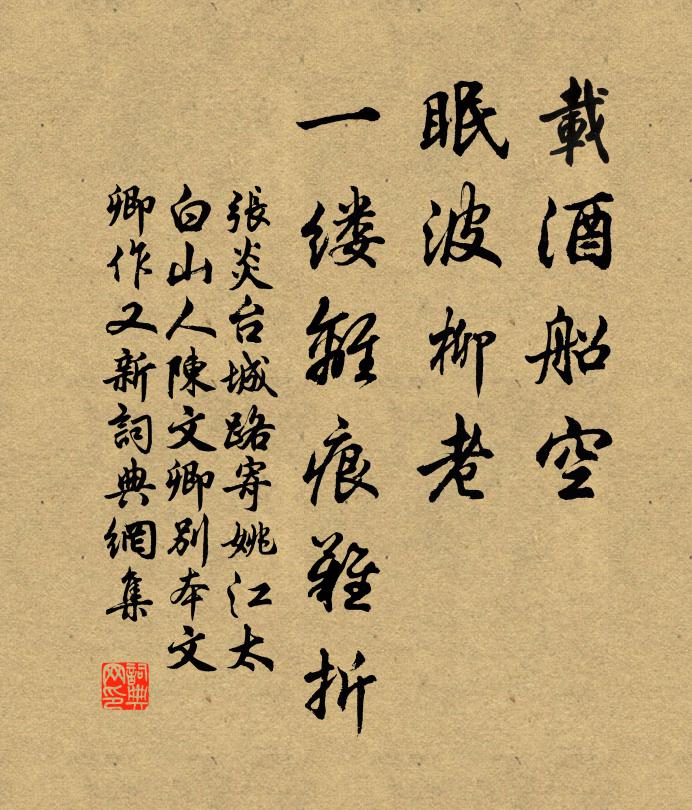 載酒船空
眠波柳老
一缕離痕難折
張炎台城路寄姚江太
白山人陳文卿别本文
卿作又新詞典網集
詞典
网印